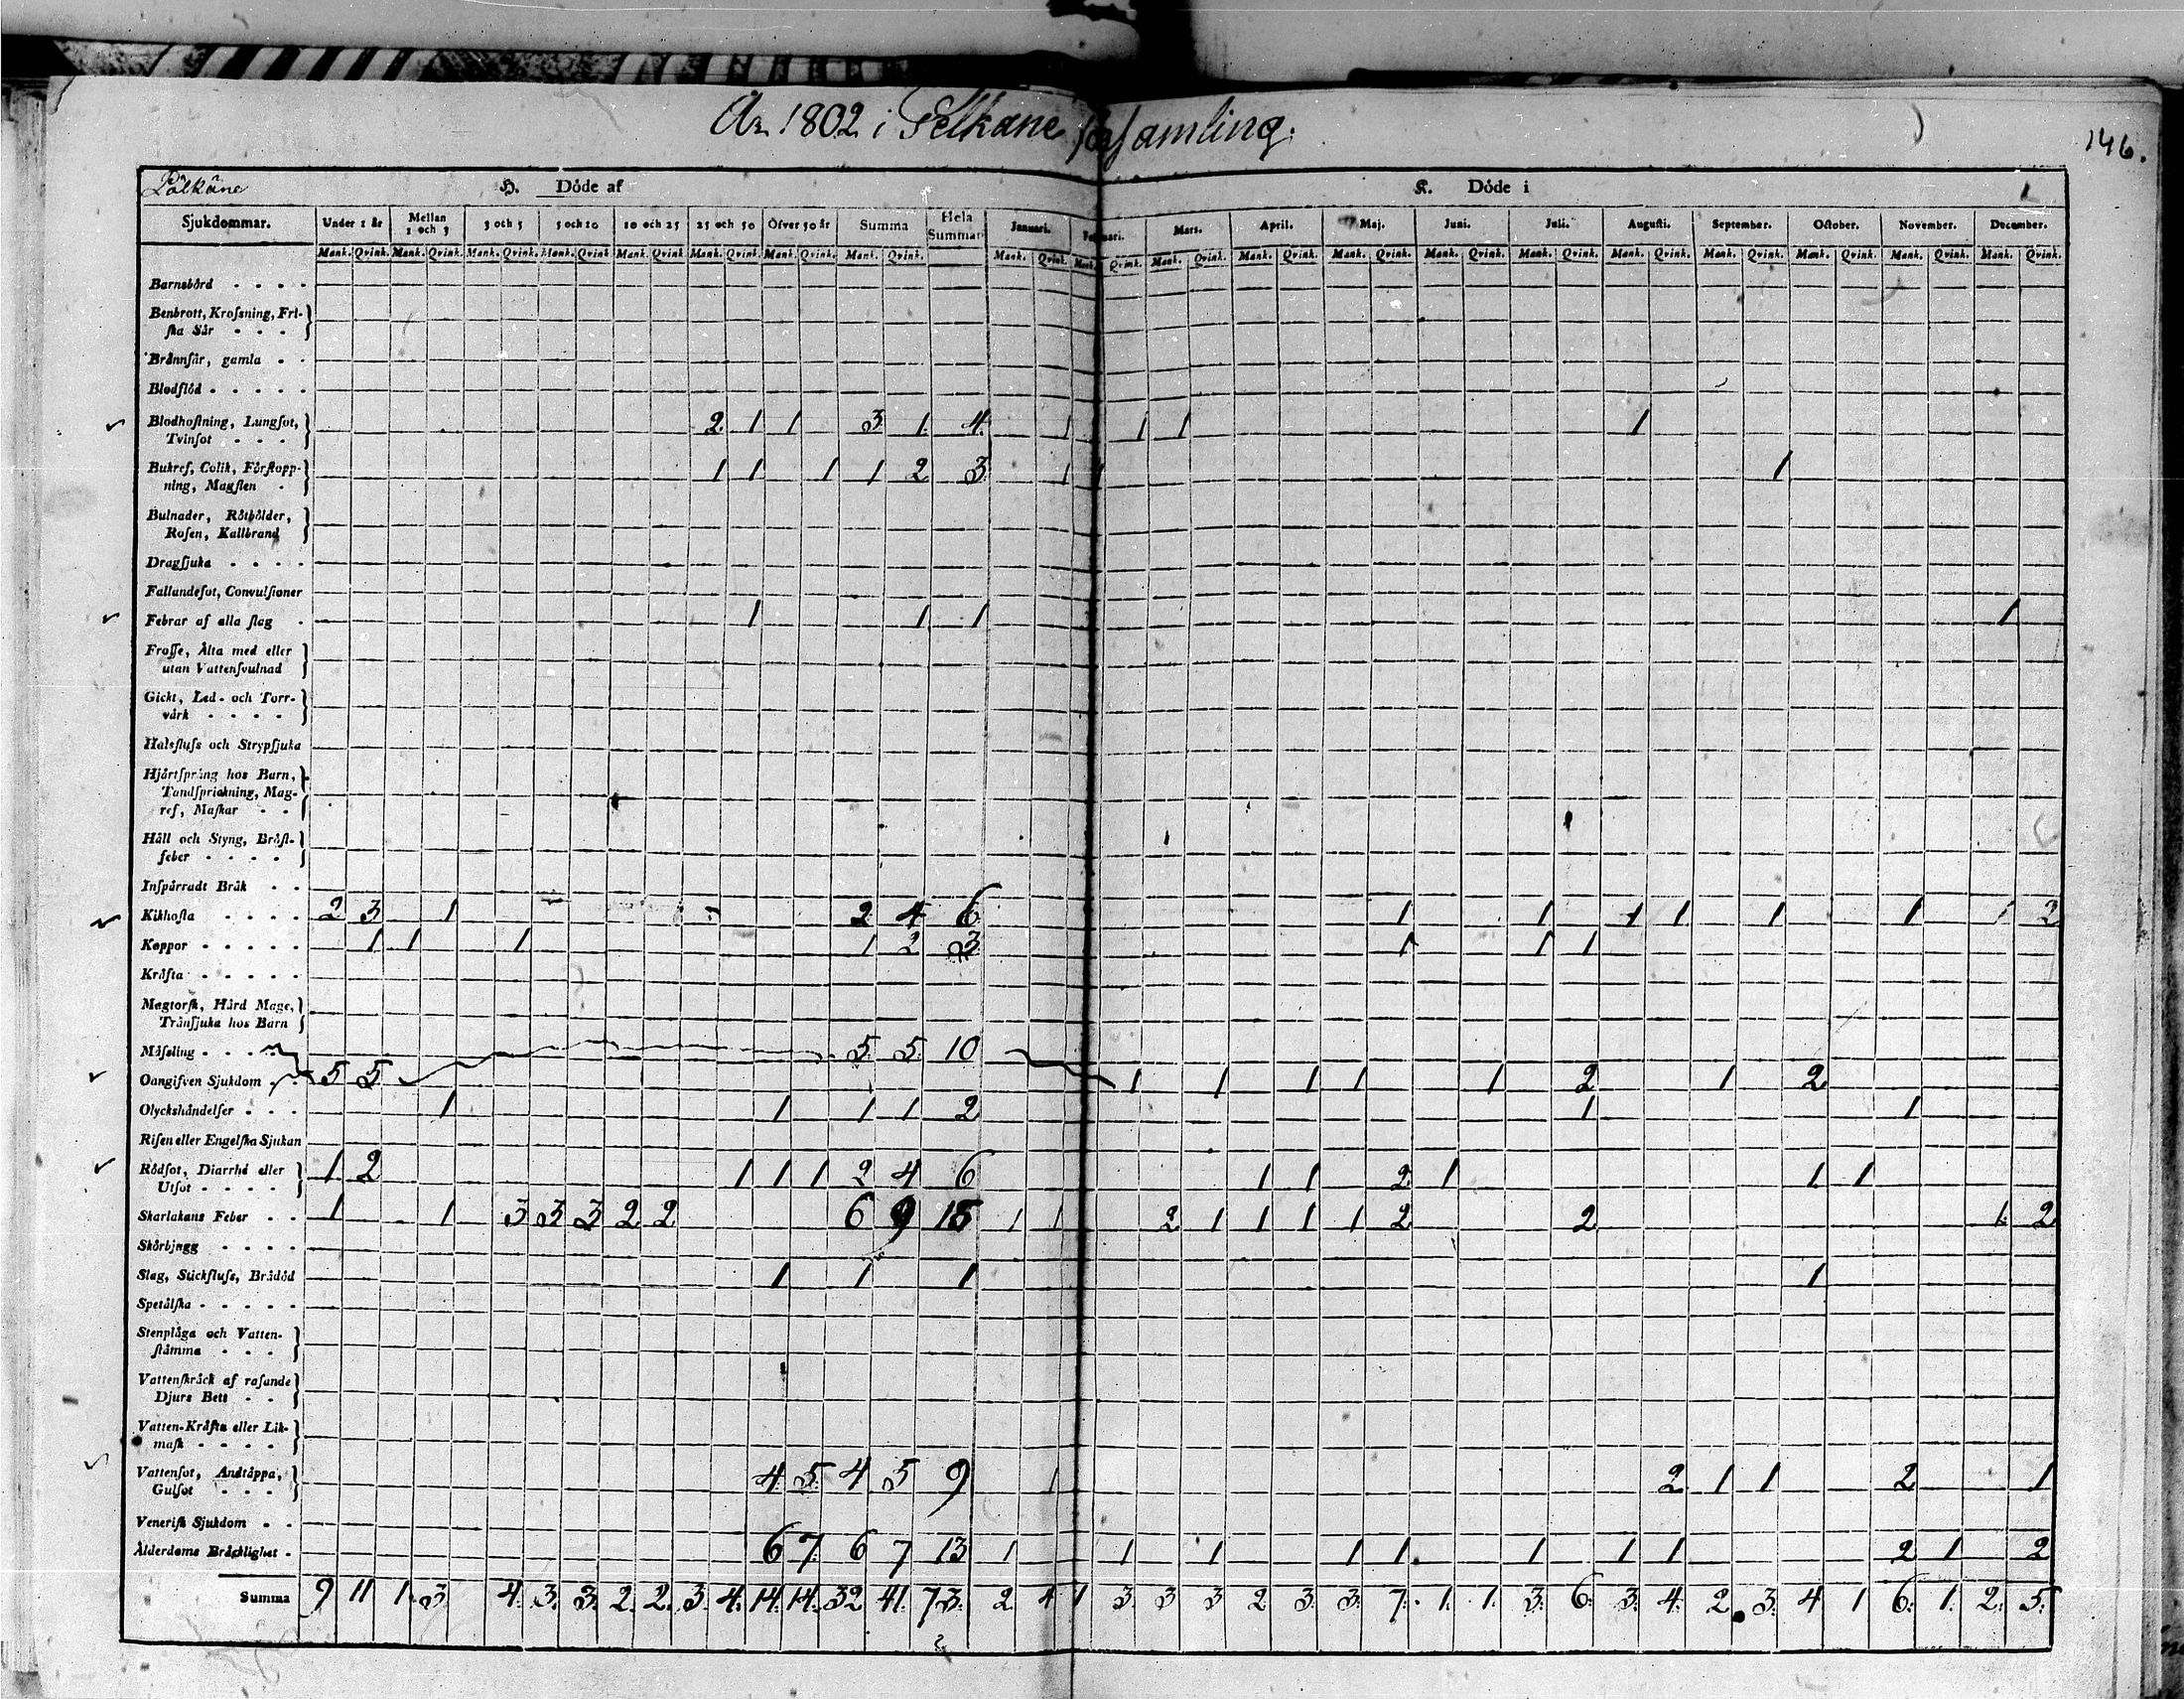 År 1802 i Pelkäne församling.
146.
Pälkäne H. Döde af K. Döde i
Sjukdommar. Under 1 år Mellan 1 och 3 3 och 5 5 och 10 10 och 25 25 och 50 Öfver 50 år Summa Hela Summan Januari. Februari. Mars. April. Maj. Juni. Juli. Augusti. September. October. November. December.
Mank. Qvink. Mank. Qvink. Mank. Qvink. Mank. Qvink. Mank. Qvink. Mank. Qvink. Mank. Qvink. Mank. Qvink. Mank. Qvink. Mank. Qvink. Mank. Qvink. Mank. Qvink. Mank. Qvink. Mank. Qvink. Mank. Qvink. Mank. Qvink. Mank. Qvink. Mank. Qvink. Mank. Qvink. Mank. Qvink.
Barnsbörd
Benbrott, Krosſning, Fri-
ſka Sår
Brännſår, gamla
Blodflöd
Blodhoſtning, Lungſot,
Tvinſot 2 1 1 3 1 4 1 1 1 1
Bukref, Colik, Förſtopp-
ning, Magſten 1 1 1 1 2 3 1 1 1
Bulnader, Rötbölder,
Roſen, Kallbrand
Dragſjuka
Fallandeſot, Convulſioner
Febrar af alla ſlag 1 1 1 1
Froſſe, Älta med eller
utan Vattenſvulnad
Gickt, Led- och Torr-
värk
Halsfluſs och Strypſjuka
Hjärtſpräng hos Barn,
Tandſprickning, Mag-
ref, Maſkar
Håll och Styng, Bröſt-
feber
Inſpärradt Bråk
Kikhoſta 2 3 1 2 4 6 1 1 1 1 1 1 1 2
Koppor 1 1 1 1 2 3 1 1 1
Kräfta
Magtorſk, Hård Mage,
Tränſjuka hos Barn
Mäſsling 5 5 10
Oangifven Sjukdom 5 5 1 1 1 1 1 2 1 2
Olyckshändelſer 1 1 1 1 2 1 1
Riſen eller Engelſka Sjukan
Rödſot, Diarrhé eller
Utſot 1 2 1 1 1 2 4 6 1 1 2 1 1 1
Skarlakans Feber 1 1 3 3 3 2 2 6 9 15 1 1 2 1 1 1 1 2 2 1 2
Skörbjugg
Slag, Stickfluſs, Brådöd 1 1 1 1
Spetälſka
Stenplåga och Vatten-
ſtämma
Vattenſkräck af raſande
Djurs Bett
Vatten-Kräfta eller Lik-
maſk
Vattenſot, Andtäppa,
Gulſot 4 5 4 5 9 1 2 1 1 2 1
Veneriſk Sjukdom
Ålderdoms Bräcklighet 6 7 6 7 13 1 1 1 1 1 1 1 1 2 1 2
Summa 9 11 1 3 4 3 3 2 2 3 4 14 14 32 41 73 2 4 1 3 3 3 2 3 3 7 1 1 3 6 3 4 2 3 4 1 6 1 2 5